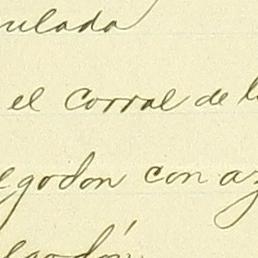 ulada
el corral de l
egodon con az
egodón